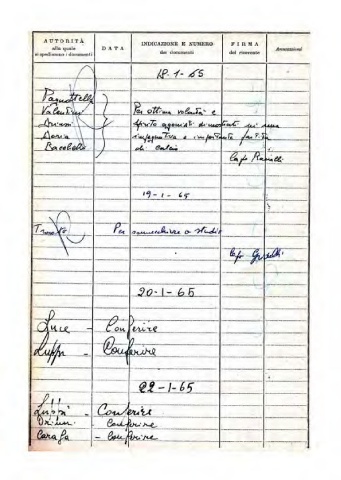 AUTORITÀ alla quale si spediscono i documenti
DATA
INDICAZIONE E NUMERO dei documenti
FIRMA del ricevente
Annotazioni
18-1-65
Pagnottella
Valentini
Doria
Bacobello
Per ottima volontà e
spirito agonisti dimostrati in una
impegnativa e importante partita
di calcio
Cap Ravalli
19-1-65
Per a studio
Cap
20-1-65
Luce - Conferire
Luppi - Conferire
22-1-65
Luppi - Conferire
- Conferire
Carafa - Conferire